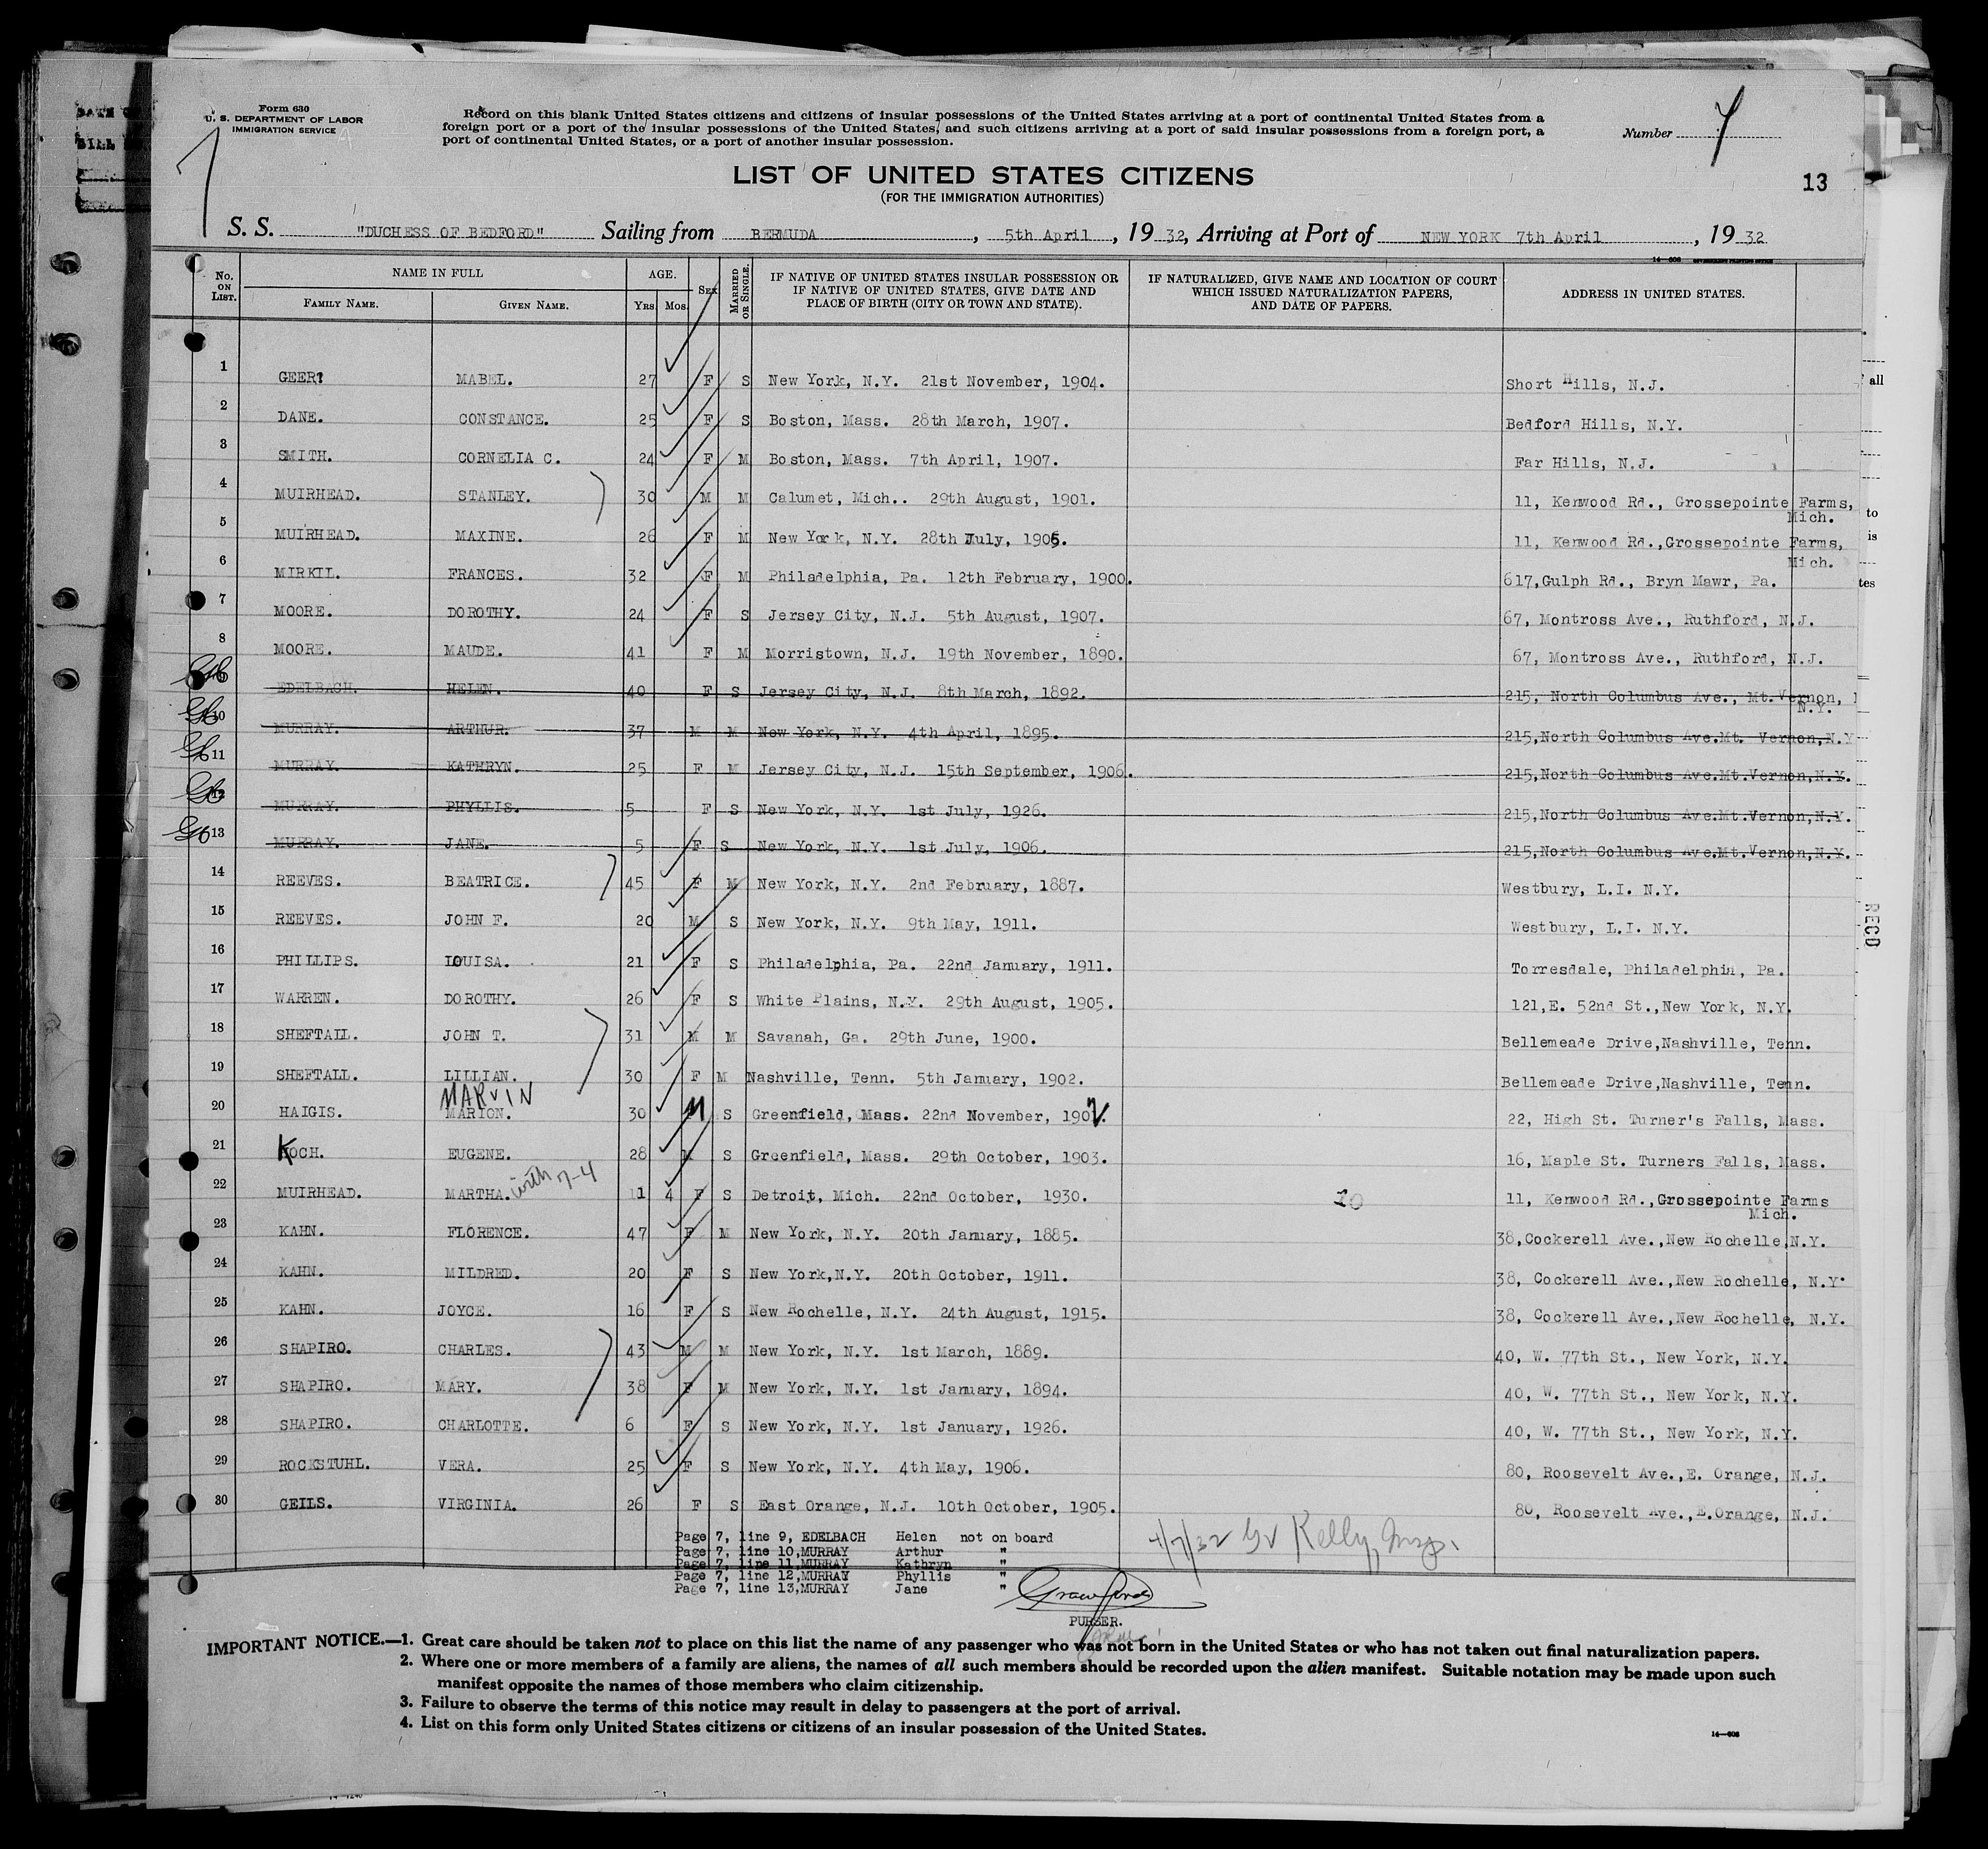 Form 630
U. S. DEPARTMENT OF LABOR
IMMIGRATION SERVICE
Record on this blank United States citizens and citizens of insular possessions of the United States arriving at a port of continental United States from a
foreign port or a port of the insular possessions of the United States, and such citizens arriving at a port of said insular possessions from a foreign port, a
port of continental United States, or a port of another insular possession.
Number 7
LIST OF UNITED STATES CITIZENS
(FOR THE IMMIGRATION AUTHORITIES)
13
S. S. "DUCHESS OF BEDFORD" Sailing from BERMUDA, 5th April, 1932, Arriving at Port of NEW YORK 7th April, 1932
No. ON LIST. NAME IN FULL FAMILY NAME. GIVEN NAME. AGE. Yrs. Mos. SEX MARRIED OR SINGLE. IF NATIVE OF UNITED STATES INSULAR POSSESSION OR IF NATIVE OF UNITED STATES, GIVE DATE AND PLACE OF BIRTH (CITY OR TOWN AND STATE). IF NATURALIZED, GIVE NAME AND LOCATION OF COURT WHICH ISSUED NATURALIZATION PAPERS, AND DATE OF PAPERS. ADDRESS IN UNITED STATES.
1 MABEL. 27 F S New York, N.Y. 21st November, 1904. Short Hills, N.J.
2 DANE. CONSTANCE. 25 F S Boston, Mass. 28th March, 1907. Bedford Hills, N.Y.
3 SMITH. CORNELIA C. 24 F M Boston, Mass. 7th April, 1907. Far Hills, N.J.
4 MUIRHEAD. STANLEY. 30 M M Calumet, Mich.. 29th August, 1901. 11, Kenwood Rd., Grossepointe Farms, Mich.
5 MUIRHEAD. MAXINE. 26 F M New York, N.Y. 28th July, 1905. 11, Kenwood Rd.,Grossepointe Farms, Mich.
6 MIRKIL. FRANCES. 32 F M Philadelphia, Pa. 12th February, 1900. 617,Gulph Rd., Bryn Mawr, Pa.
7 MOORE. DOROTHY. 24 F S Jersey City, N.J. 5th August, 1907. 67, Montross Ave., Ruthford, N.J.
8 MOORE. MAUDE. 41 F M Morristown, N.J. 19th November, 1890. 67, Montross Ave., Ruthford, N.J.
9 EDELBACH. HELEN. 40 F S Jersey City, N.J. 8th March, 1892. 215, North Columbus Ave., Mt.Vernon, N.Y.
10 MURRAY. ARTHUR. 37 M M New York, N.Y. 4th April, 1895. 215,North Columbus Ave.Mt. Vernon,N.Y
11 MURRAY. KATHRYN. 25 F M Jersey City, N.J. 15th September, 1906. 215,North Columbus Ave.Mt.Vernon,N.Y.
12 MURRAY. PHYLLIS. 5 F S New York, N.Y. 1st July, 1926. 215,North Columbus Ave.Mt.Vernon,N.Y.
13 MURRAY. JANE. 5 F S New York, N.Y. 1st July, 1906. 215,North Columbus Ave.Mt.Vernon,N.Y.
14 REEVES. BEATRICE. 45 F M New York, N.Y. 2nd February, 1887. Westbury, L.I. N.Y.
15 REEVES. JOHN F. 20 M S New York, N.Y. 9th May, 1911. Westbury, L.I. N.Y.
16 PHILLIPS. LOUISA. 21 F S Philadelphia, Pa. 22nd January, 1911. Torresdale, Philadelphia, Pa.
17 WARREN. DOROTHY. 26 F S White Plains, N.Y. 29th August, 1905. 121,E. 52nd St.,New York, N.Y.
18 SHEFTALL. JOHN T. 31 M M Savanah, Ga. 29th June, 1900. Bellemeade Drive,Nashville, Tenn.
19 SHEFTALL. LILLIAN. 30 F M Nashville, Tenn. 5th January, 1902. Bellemeade Drive,Nashville, Tenn.
MARVIN
20 HAIGIS. MARION. 30 M S Greenfield, Mass. 22nd November, 190 22, High St. Turner's Falls, Mass.
21 KOCH. EUGENE. 28 M S Greenfield, Mass. 29th October, 1903. 16, Maple St. Turners Falls, Mass.
22 MUIRHEAD. MARTHA. with 7-4 11 4 F S Detroit, Mich. 22nd October, 1930. 11, Kenwood Rd.,Grossepointe Farms Mich.
23 KAHN. FLORENCE. 47 F M New York, N.Y. 20th January, 1885. 38,Cockerell Ave.,New Rochelle,N.Y.
24 KAHN. MILDRED. 20 F S New York,N.Y. 20th October, 1911. 38, Cockerell Ave.,New Rochelle, N.Y.
25 KAHN. JOYCE. 16 F S New Rochelle, N.Y. 24th August, 1915. 38, Cockerell Ave.,New Rochelle, N.Y.
26 SHAPIRO. CHARLES. 43 M M New York, N.Y. 1st March, 1889. 40, W. 77th St., New York, N.Y.
27 SHAPIRO. MARY. 38 F M New York, N.Y. 1st January, 1894. 40, W. 77th St., New York, N.Y.
28 SHAPIRO. CHARLOTTE. 6 F S New York, N.Y. 1st January, 1926. 40, W. 77th St., New York, N.Y.
29 ROCKSTUHL. VERA. 25 F S New York, N.Y. 4th May, 1906. 80, Roosevelt Ave.,E. Orange, N.J.
30 GEILS. VIRGINIA. 26 F S East Orange, N.J. 10th October, 1905. 80, Roosevelt Ave.,E.Orange, N.J.
Page 7, line 9, EDELBACH Helen not on board
Page 7, line 10,MURRAY Arthur "
Page 7, line 11,MURRAY Kathryn "
Page 7, line 12,MURRAY Phyllis "
Page 7, line 13,MURRAY Jane "
4/7/32 Kelly
PURSER.
IMPORTANT NOTICE.—1. Great care should be taken not to place on this list the name of any passenger who was not born in the United States or who has not taken out final naturalization papers.
2. Where one or more members of a family are aliens, the names of all such members should be recorded upon the alien manifest. Suitable notation may be made upon such
manifest opposite the names of those members who claim citizenship.
3. Failure to observe the terms of this notice may result in delay to passengers at the port of arrival.
4. List on this form only United States citizens or citizens of an insular possession of the United States.
14—608
RECD